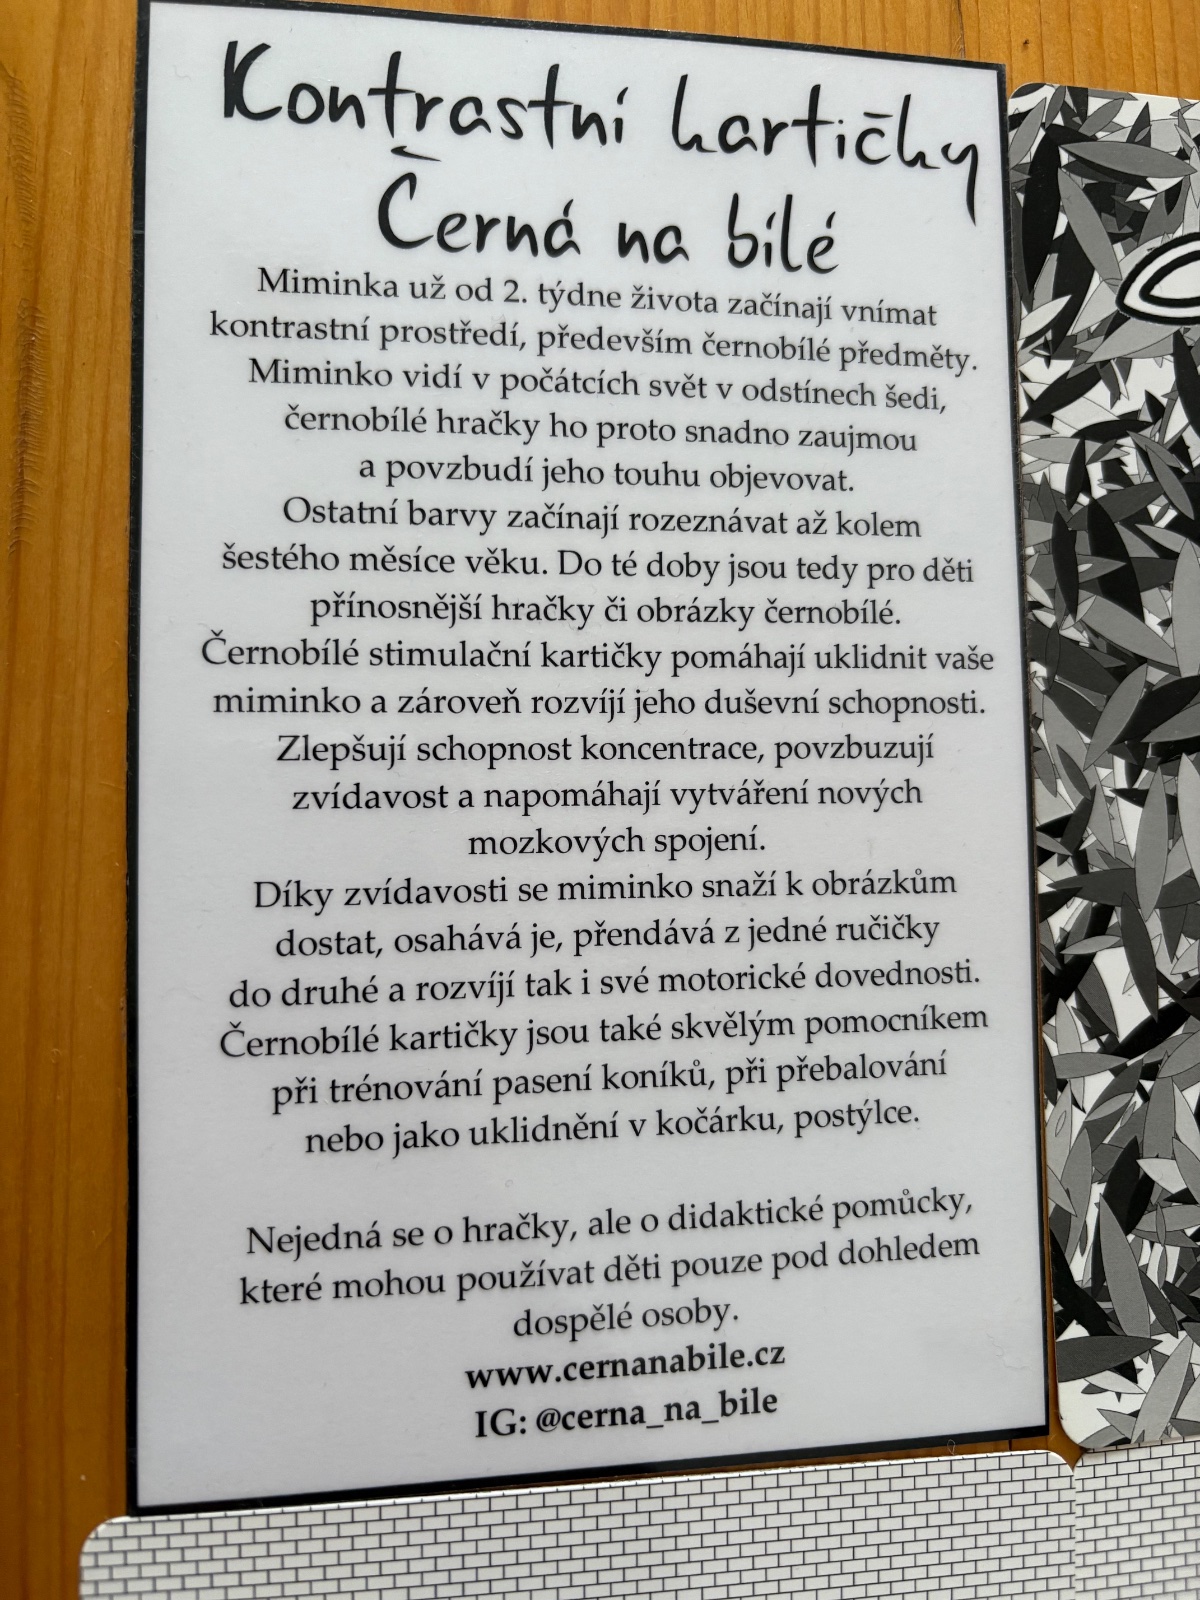 Kontrastní kartičky
Černá na bílé
Miminka už od 2. týdne života začínají vnímat
kontrastní prostředí, především černobílé předměty.
Miminko vidí v počátcích svět v odstínech šedi,
černobílé hračky ho proto snadno zaujmou
a povzbudí jeho touhu objevovat.
Ostatní barvy začínají rozeznávat až kolem
šestého měsíce věku. Do té doby jsou tedy pro děti
přínosnější hračky či obrázky černobílé.
Černobílé stimulační kartičky pomáhají uklidnit vaše
miminko a zároveň rozvíjí jeho duševní schopnosti.
Zlepšují schopnost koncentrace, povzbuzují
zvídavost a napomáhají vytváření nových
mozkových spojení.
Díky zvídavosti se miminko snaží k obrázkům
dostat, osahává je, přendává z jedné ručičky
do druhé a rozvíjí tak i své motorické dovednosti.
Černobílé kartičky jsou také skvělým pomocníkem
při trénování pasení koníků, při přebalování
nebo jako uklidnění v kočárku, postýlce.
Nejedná se o hračky, ale o didaktické pomůcky,
které mohou používat děti pouze pod dohledem
dospělé osoby.
www.cernanabile.cz
IG: @cerna_na_bile